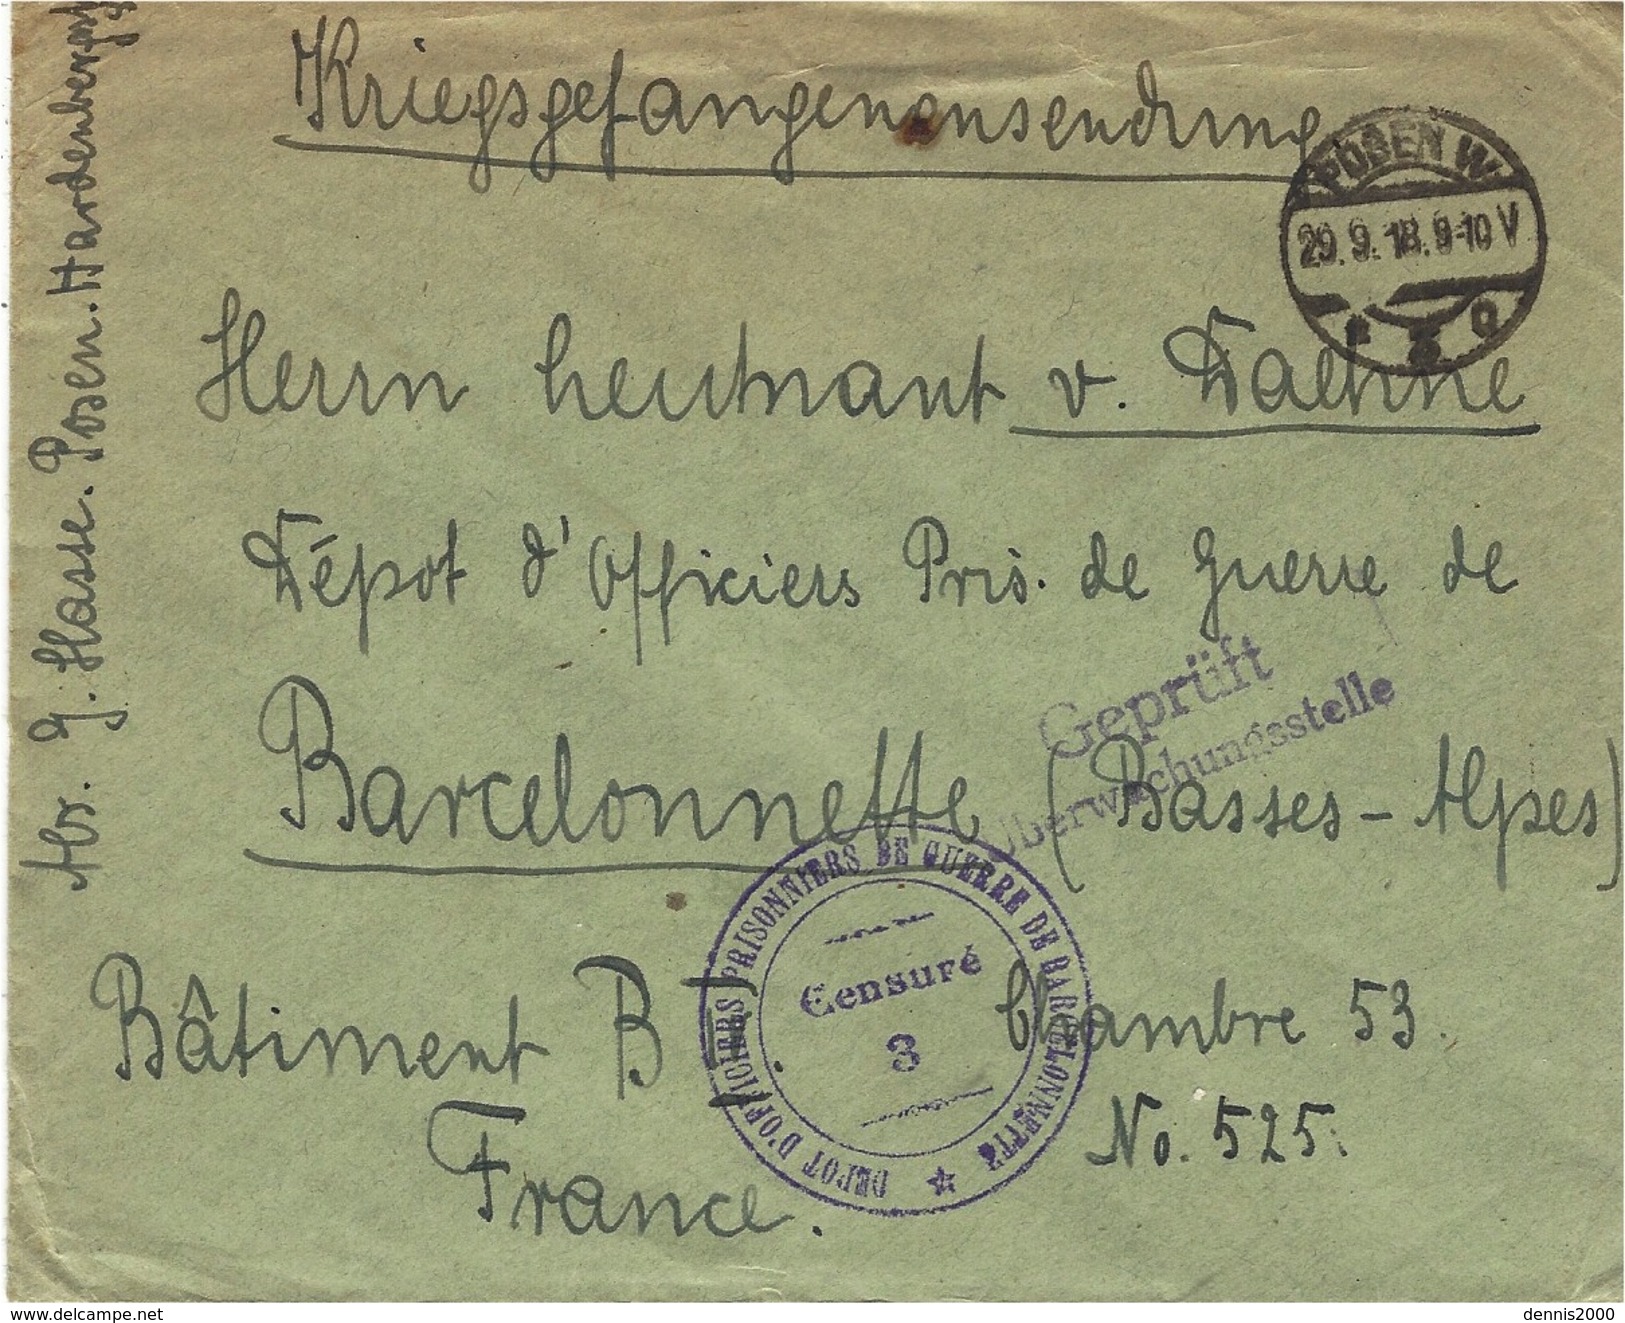 Kriegsgefangenensendung
POSEN W.
29.9.18.9-10 V
Herrn Leutnant v. Daehne
Dépot d'Officiers Pris. de Guerre de
Barcelonnette (Basses-Alpes)
Geprüft
Überwachungsstelle
Bâtiment B Chambre 53.
No. 525.
France.
DEPOT D'OFFICIERS PRISONNIERS DE GUERRE DE BARCELONNETTE
Censuré
3
Abs. G. Hasse. Posen. Hardenbergstr
delcampe.net
dennis2000